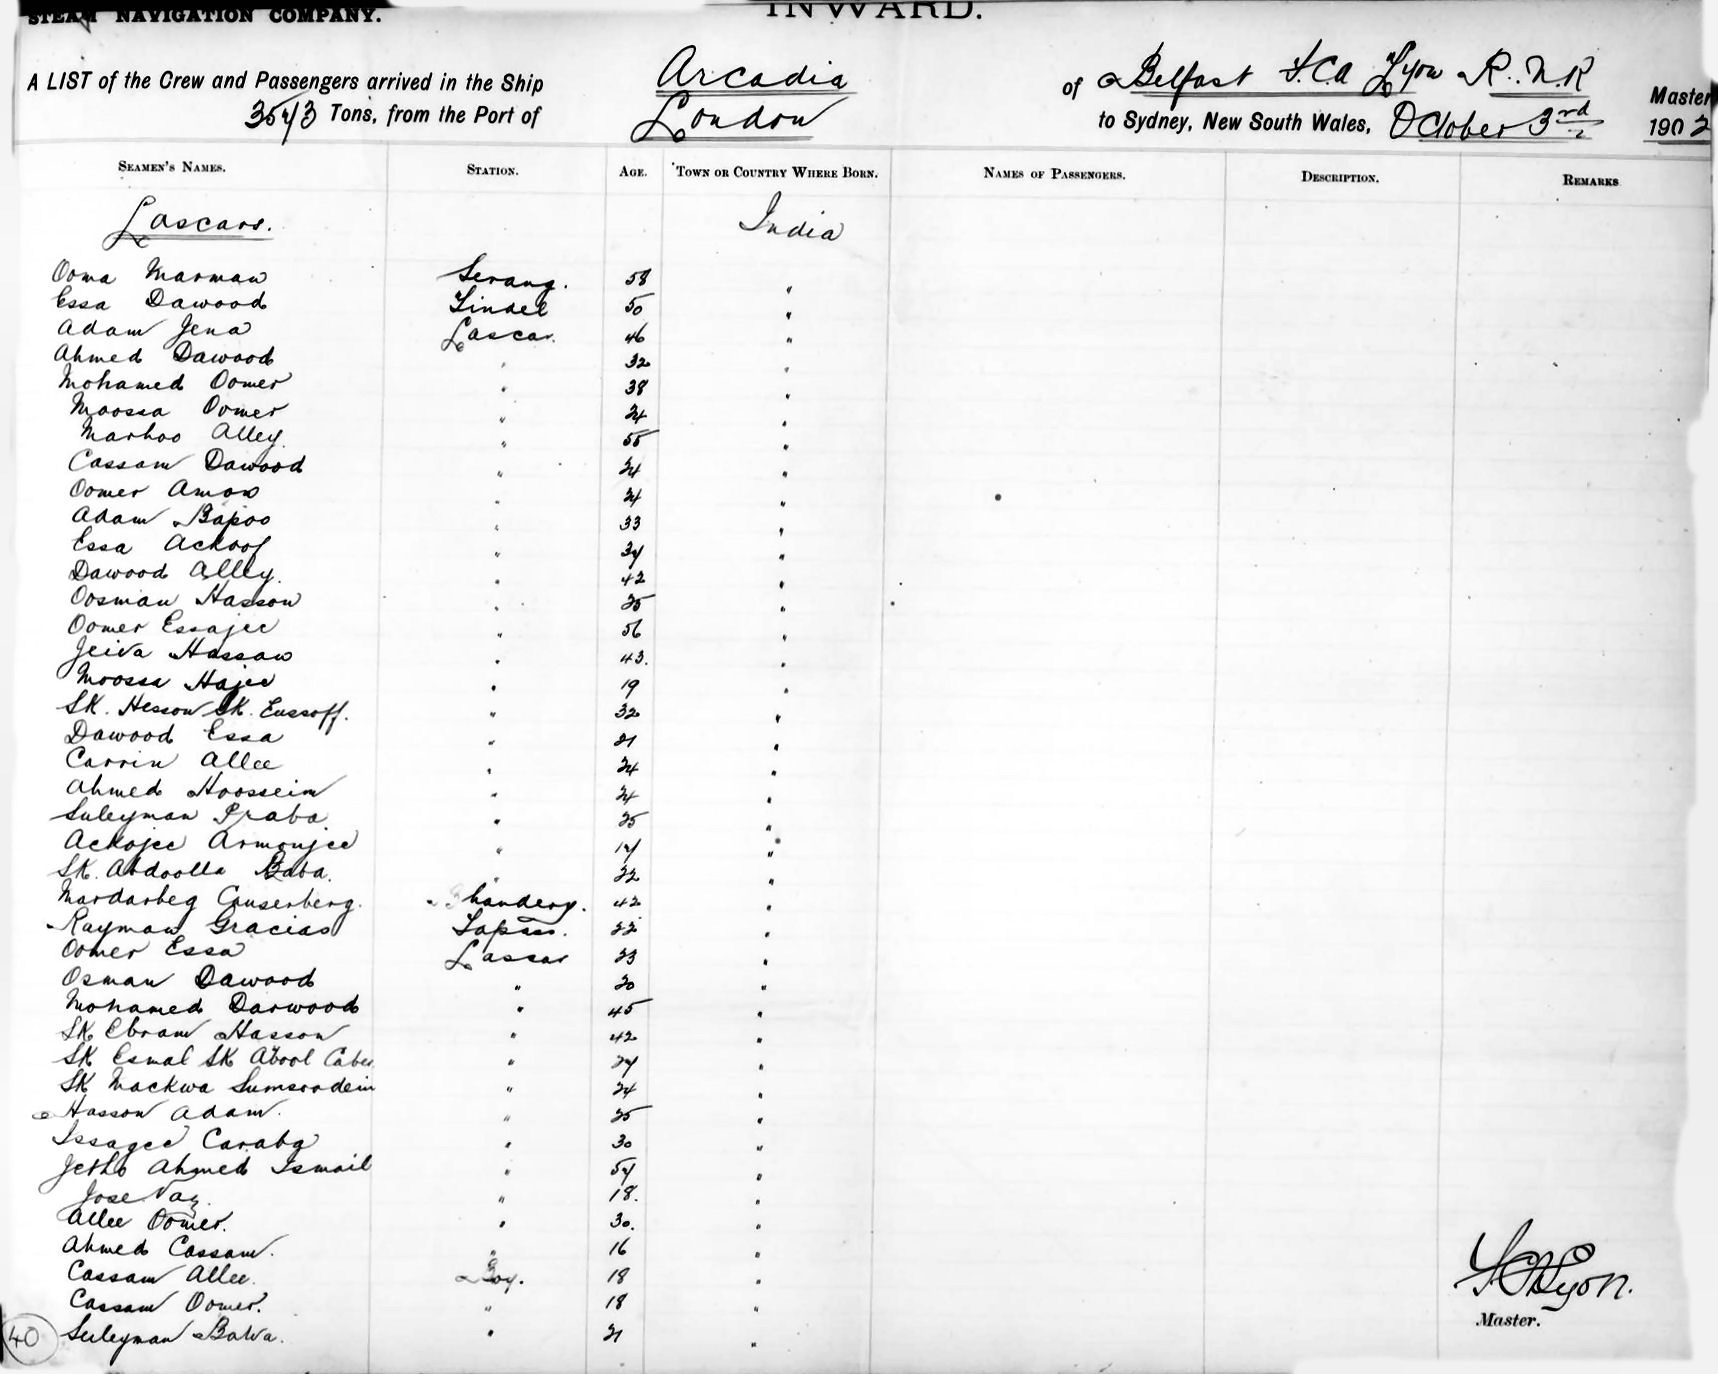 STEAM NAVIGATION COMPANY. INWARD.
A LIST of the Crew and Passengers arrived in the Ship Arcadia of Belfast F.C.A Lyon R.N.R Master
3543 Tons, from the Port of London to Sydney, New South Wales, October 3rd 1902
SEAMEN'S NAMES. STATION. AGE. TOWN OR COUNTRY WHERE BORN. NAMES OF PASSENGERS. DESCRIPTION. REMARKS
Lascars. India
Ooma Marman Serang. 58 "
Essa Dawood Tindel 50 "
Adam Jena Lascar. 46 "
Ahmed Dawood " 32 "
Mohamed Oomer " 38 "
Moossa Oomer " 24 "
Marhoo Alley " 55 "
Cassam Dawood " 24 "
Oomer Amow " 24 "
Adam Bapoo " 33 "
Essa Ackoof " 34 "
Dawood Alley. " 42 "
Oosman Hasson " 25 "
Oomer Essajee " 56 "
Jeiva Hassan " 43. "
Moossa Hajee " 19 "
SK. Hesson SK. Eussoff. " 32 "
Dawood Essa " 21 "
Carrin Allee " 24 "
Ahmed Hoossein " 24 "
Suleyman Praba. " 25 "
Ackojee Armonjee " "
SK. Abdoolla Baba. " 22 "
Mardarbeg Causerberg. Bhandery. 42 "
Rayman Gracias Topass. 22 "
Oomer Essa Lascar 23 "
Osman Dawood " 20 "
Mohamed Darwood " 45 "
SK Ebram Hasson " 42 "
SK Esmal SK Abool Cader " 24 "
SK Mackwa Sumsoodein " 24 "
Hasson Adam. " 25 "
Issagee Caraba " 30 "
Jetho Ahmed Ismail " 54 "
Jose Vaz. " 18. "
Allee Oomer. " 30. "
Ahmed Cassam. " 16 "
Cassam Allee. Boy. 18 "
Cassam Oomer. " 18 "
40 Suleyman Bawa. " 21 "
F C A Lyon.
Master.